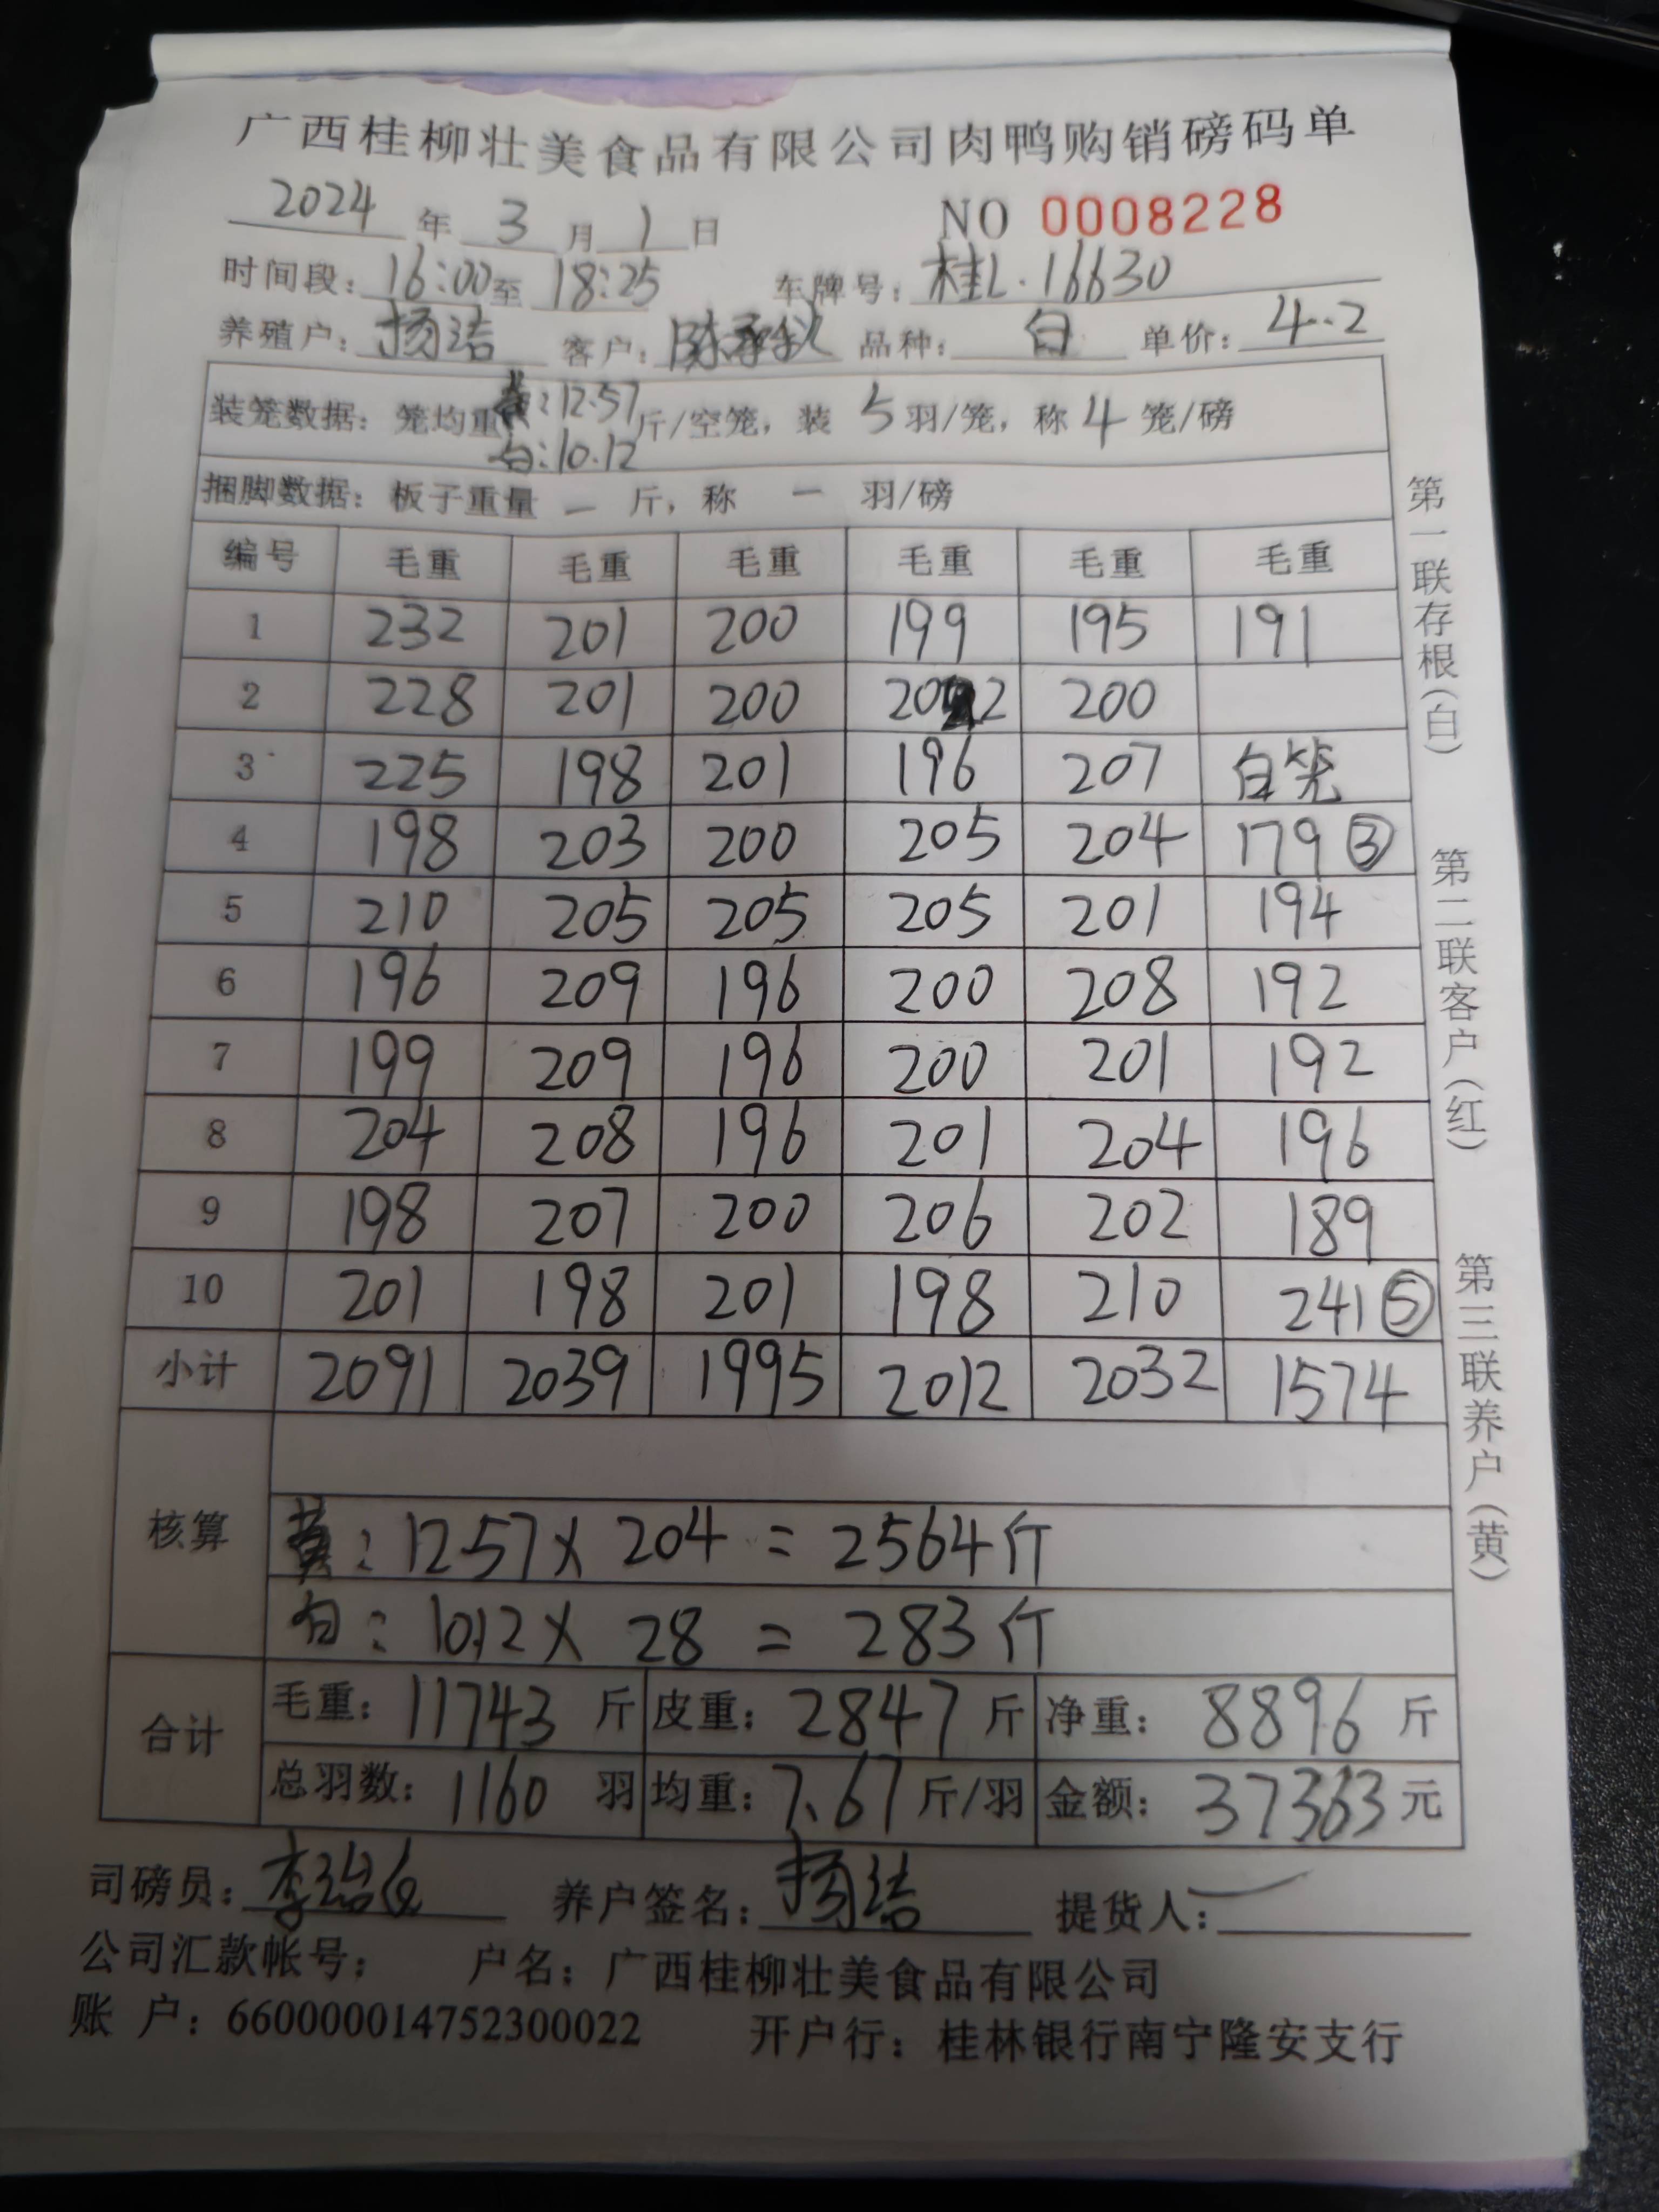 广西桂柳壮美食品有限公司肉鸭购销磅码单
2024 年 3 月 1 日 NO 0008228
时间段: 16:00 至 18:25 车牌号: 桂L·16630
养殖户: 杨洁 客户: 陈承秋 品种: 白 单价: 4.2
装笼数据: 笼均重 黄:12.57 斤/空笼, 装 5 羽/笼, 称 4 笼/磅
白:10.12
捆脚数据: 板子重量 — 斤, 称 — 羽/磅
编号 毛重 毛重 毛重 毛重 毛重 毛重
1 232 201 200 199 195 191
2 228 201 200 202 200
3 225 198 201 196 207 白笼
4 198 203 200 205 204 179 ③
5 210 205 205 205 201 194
6 196 209 196 200 208 192
7 199 209 196 200 201 192
8 204 208 196 201 204 196
9 198 207 200 206 202 189
10 201 198 201 198 210 241 ⑤
小计 2091 2039 1995 2012 2032 1574
核算
黄: 12.57 × 204 = 2564斤
白: 10.12 × 28 = 283斤
合计
毛重: 11743 斤 皮重: 2847 斤 净重: 8896 斤
总羽数: 1160 羽 均重: 7.67 斤/羽 金额: 37363 元
司磅员: 养户签名: 杨洁 提货人:
公司汇款帐号: 户名: 广西桂柳壮美食品有限公司
账 户: 660000014752300022 开户行: 桂林银行南宁隆安支行
第一联存根(白)
第二联客户(红)
第三联养户(黄)